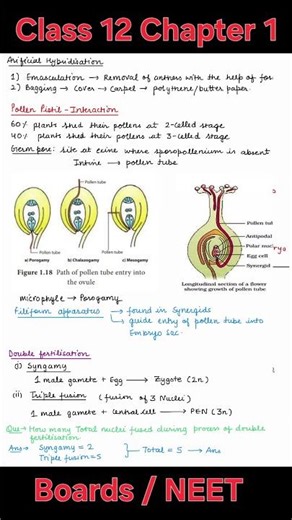 Class 12 Chapter 1
Artificial Hybridisation
1) Emasculation → Removal of anthers with the help of for
2) Bagging → Cover → Carpel → polytrene/butter paper
Pollen Pistil - Interaction
60% plants shed their pollens at 2-celled stage
40% plants shed their pollens at 3-celled stage
Germ pore: site at exine where sporopollenin is absent
Intine → pollen tube
Pollen tube
Pollen tube
Pollen tube
a) Porogamy
b) Chalazogamy
c) Mesogamy
Figure 1.18 Path of pollen tube entry into
the ovule
Pollen tul
Antipodal
Polar nuc
Egg cell
Synergid
Longitudinal section of a flower
showing growth of pollen tube
micropyle → Porogamy
Filiform apparatus → found in Synergids
→ guide entry of pollen tube into
Embryo Sac
Double fertilisation
(i) Syngamy
1 male gamete + Egg → Zygote (2n)
(ii) Triple fusion (fusion of 3 Nuclei)
1 male gamete + Central cell → PEN (3n)
Que → How many Total nuclei fused during process of double
fertilisation
Ans → Syngamy = 2
Triple fusion = 5
Total = 5 → Ans
Boards / NEET